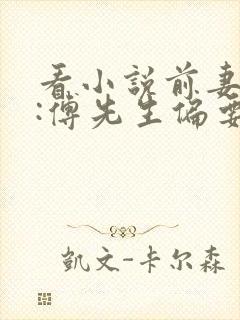 看小说前妻
:傅先生偏要
凯文-卡尔森